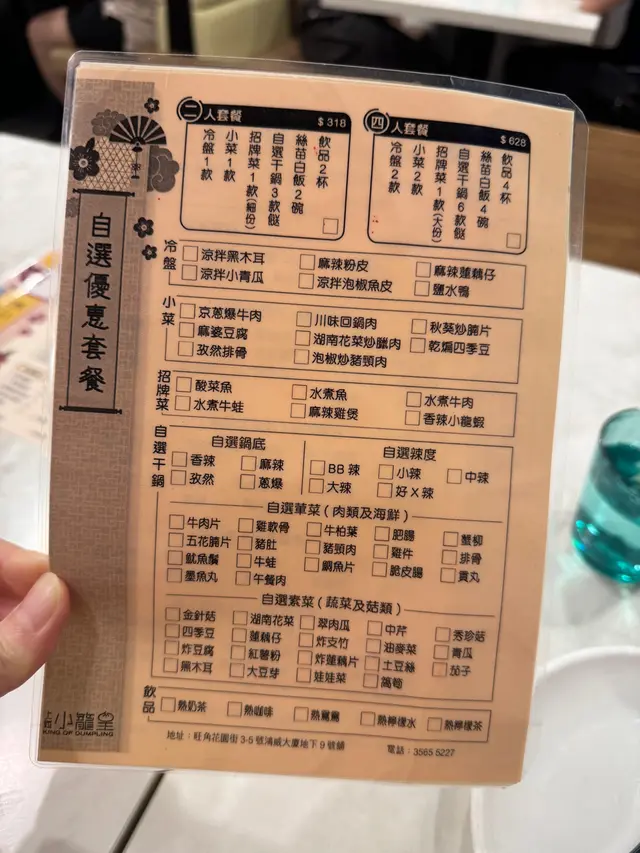 自選優惠套餐
二人套餐 $318
飲品2杯
絲苗白飯2碗
自選干鍋3款餸
招牌菜1款(細份)
小菜1款
冷盤1款
四人套餐 $628
飲品4杯
絲苗白飯4碗
自選干鍋6款餸
招牌菜1款(大份)
小菜2款
冷盤2款
冷盤
涼拌黑木耳 麻辣粉皮 麻辣蓮藕仔
涼拌小青瓜 涼拌泡椒魚皮 鹽水鴨
小菜
京蔥爆牛肉 川味回鍋肉 秋葵炒腩片
麻婆豆腐 湖南花菜炒臘肉 乾煸四季豆
孜然排骨 泡椒炒豬頸肉
招牌菜
酸菜魚 水煮魚 水煮牛肉
水煮牛蛙 麻辣雞煲 香辣小龍蝦
自選干鍋
自選鍋底
香辣 麻辣
孜然 蔥爆
自選辣度
BB辣 小辣 中辣
大辣 好X辣
自選葷菜(肉類及海鮮)
牛肉片 雞軟骨 牛柏葉 肥腸 蟹柳
五花腩片 豬肚 豬頸肉 雞件 排骨
魷魚鬚 牛蛙 鯛魚片 脆皮腸 貢丸
墨魚丸 午餐肉
自選素菜(蔬菜及菇類)
金針菇 湖南花菜 翠肉瓜 中芹 秀珍菇
四季豆 蓮藕仔 炸支竹 油麥菜 青瓜
炸豆腐 紅薯粉 炸蓮藕片 土豆絲 茄子
黑木耳 大豆芽 娃娃菜 萵筍
飲品
熱奶茶 熱咖啡 熱鴛鴦 熱檸檬水 熱檸檬茶
小籠皇
KING OF DUMPLING
地址：旺角花園街3-5號鴻威大廈地下9號舖 電話：3565 5227